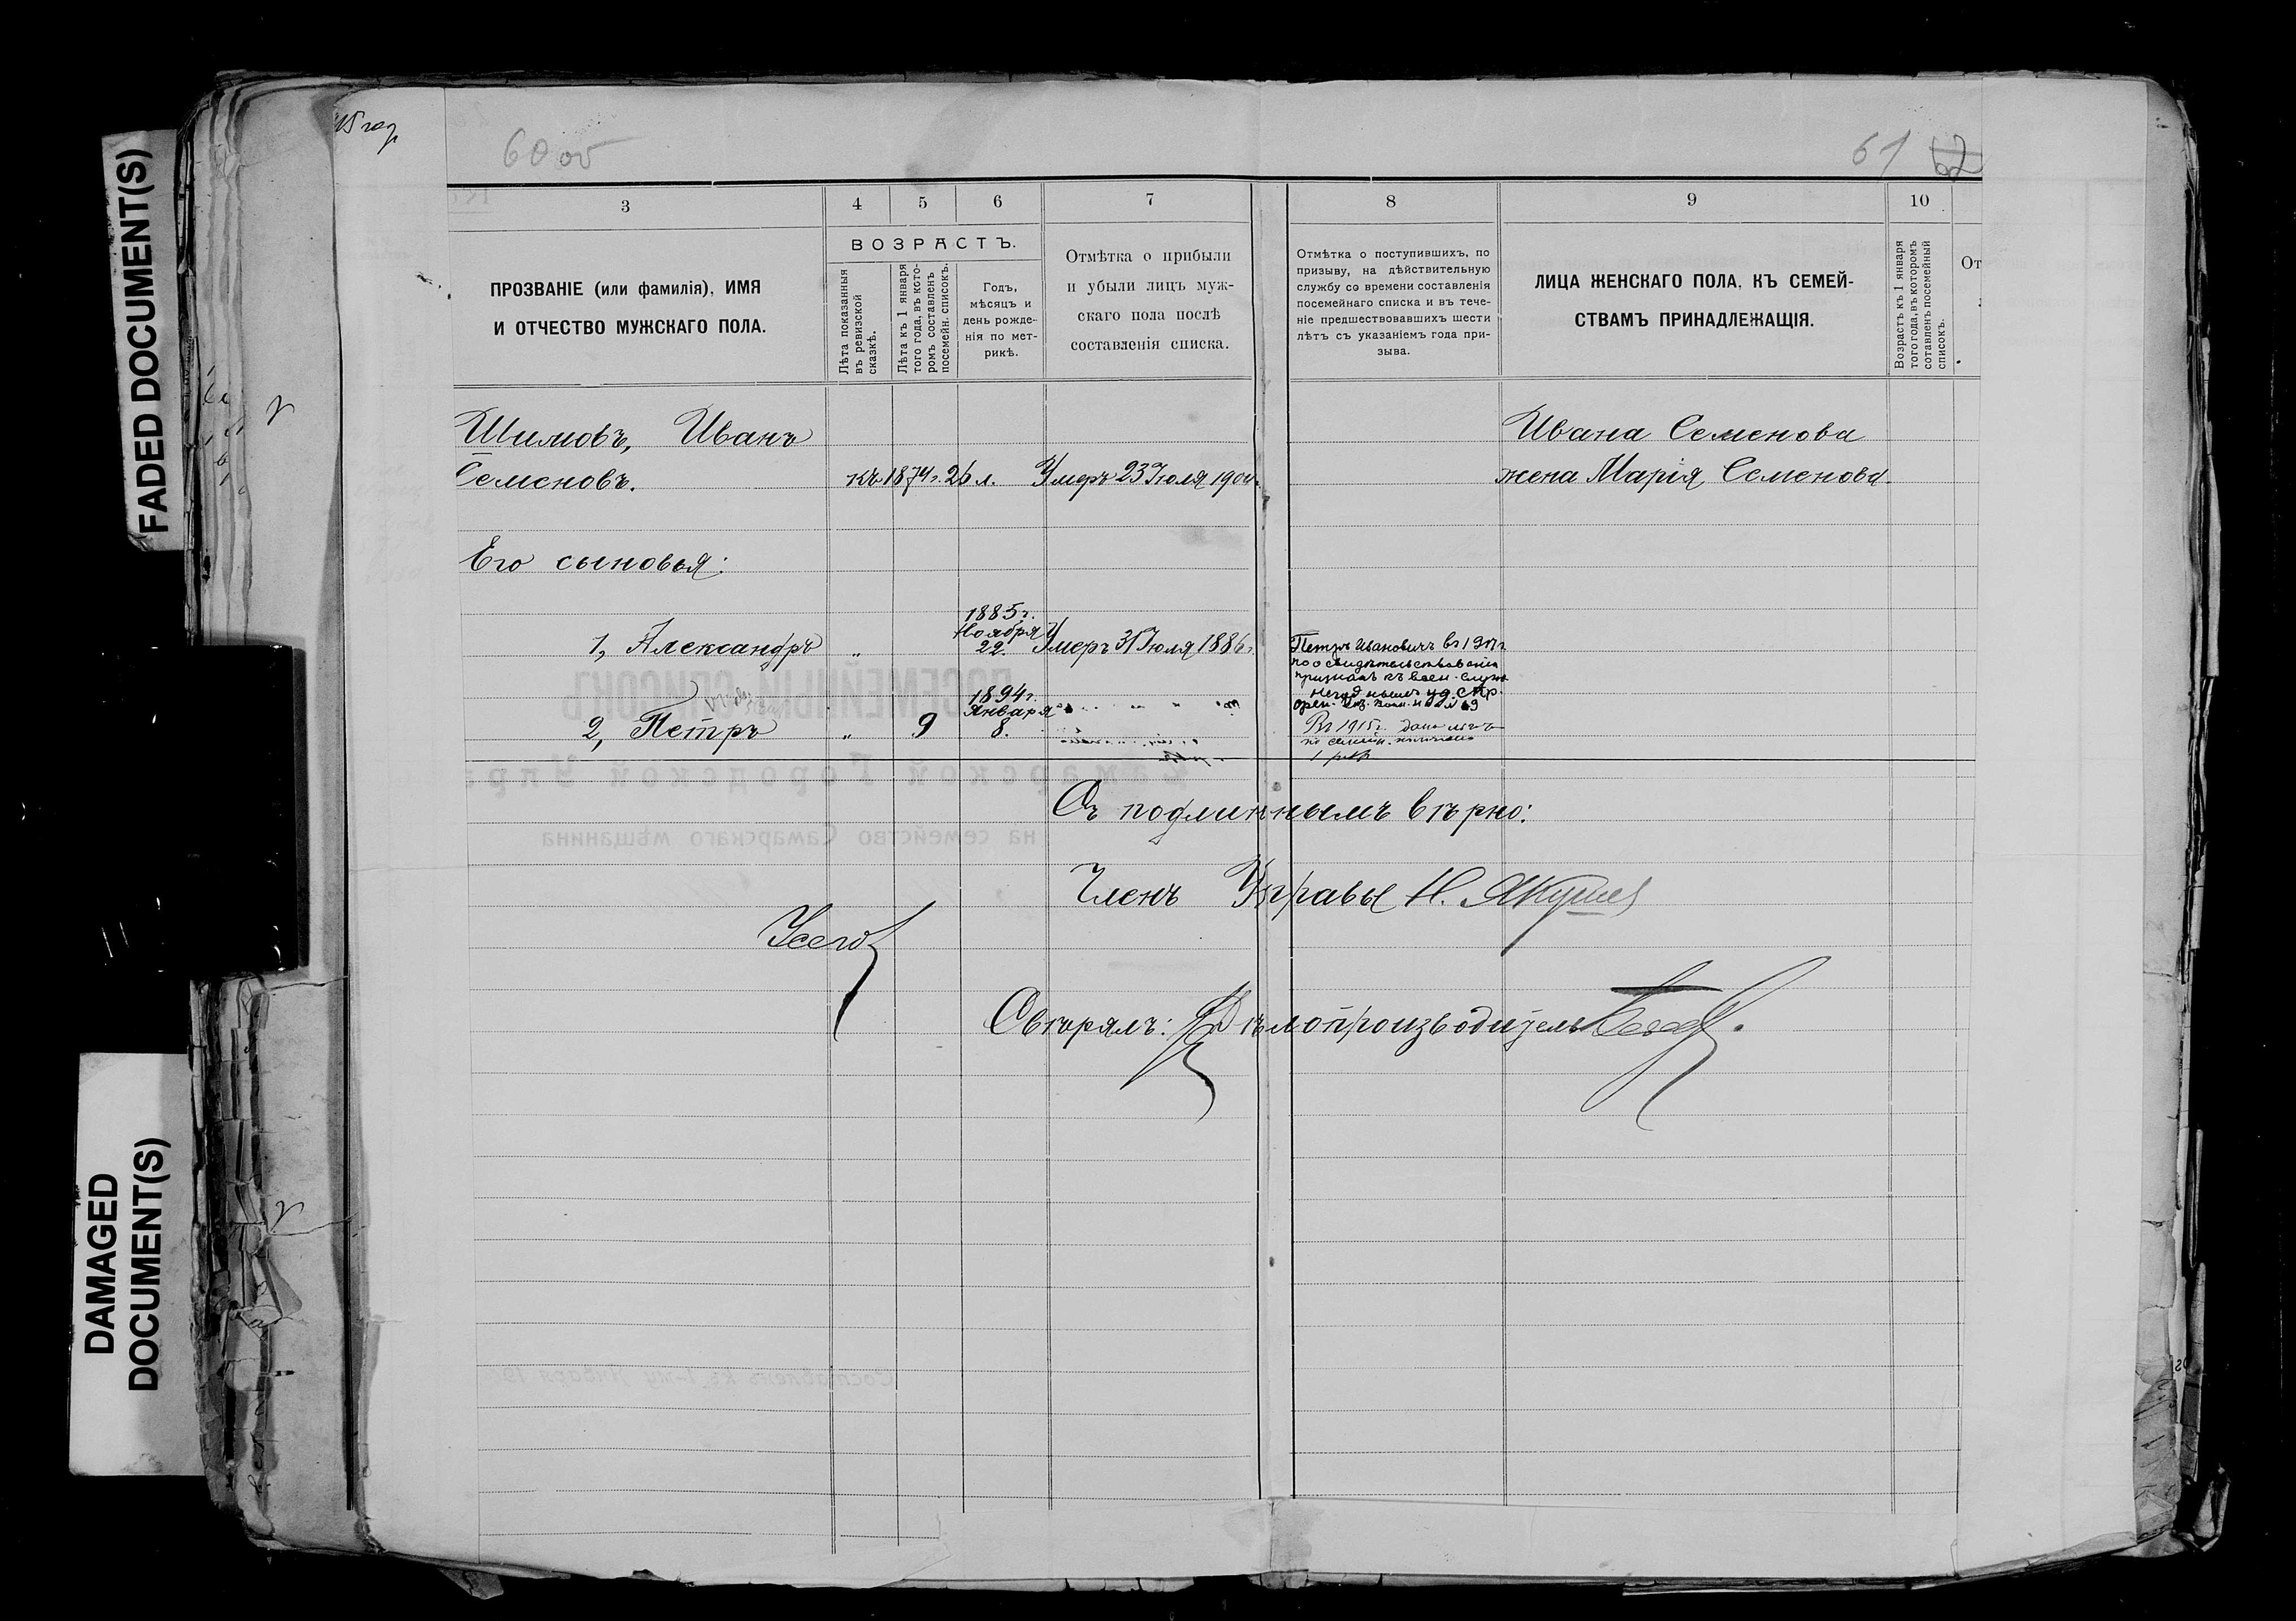 FADED DOCUMENT(S)
DAMAGED
DOCUMENT(S)
60 об
61 62
3
4 5 6
7
8
9
10
ПРОЗВАНІЕ (или фамилія), ИМЯ
И ОТЧЕСТВО МУЖСКАГО ПОЛА.
ВОЗРАСТЪ.
Лѣта показанныя
въ ревизской
сказкѣ.
Лѣта къ 1 января
того года, въ кото-
ромъ составленъ
посемейн. списокъ.
Годъ,
мѣсяцъ и
день рожде-
нія по мет-
рикѣ.
Отмѣтка о прибыли
и убыли лицъ муж-
скаго пола послѣ
составленія списка.
Отмѣтка о поступившихъ, по
призыву, на дѣйствительную
службу со времени составленія
посемейнаго списка и въ тече-
ніе предшествовавшихъ шести
лѣтъ съ указаніемъ года при-
зыва.
ЛИЦА ЖЕНСКАГО ПОЛА, КЪ СЕМЕЙ-
СТВАМЪ ПРИНАДЛЕЖАЩІЯ.
Возрастъ къ 1 января
того года, въ которомъ
сотавленъ посемейный
списокъ.
От
Шимовъ, Иванъ
Семеновъ.
къ 1874 г. 26 л.
Умеръ 23 Іюля
Ивана Семенова
жена Марія Семенова.
Его сыновья:
1, Александръ
„
1885 г.
Ноября
22.
Умеръ 31 Іюля 1886 г.
2, Петръ
„
9
1894 г.
Января
8.
Петръ Ивановичъ въ
по освидѣтельствованіи
признанъ къ воен. служ
негоднымъ уд.
Въ 1915 г. дана
Съ подлиннымъ вѣрно:
Членъ Управы Н.
Свѣрялъ: Дѣлопроизводитель
ПОСЕМЕЙНЫЙ СПИСОКЪ
Самарской Городской Упра
на семейство Самарскаго мѣщанина
Составленъ къ 1-му Января 19